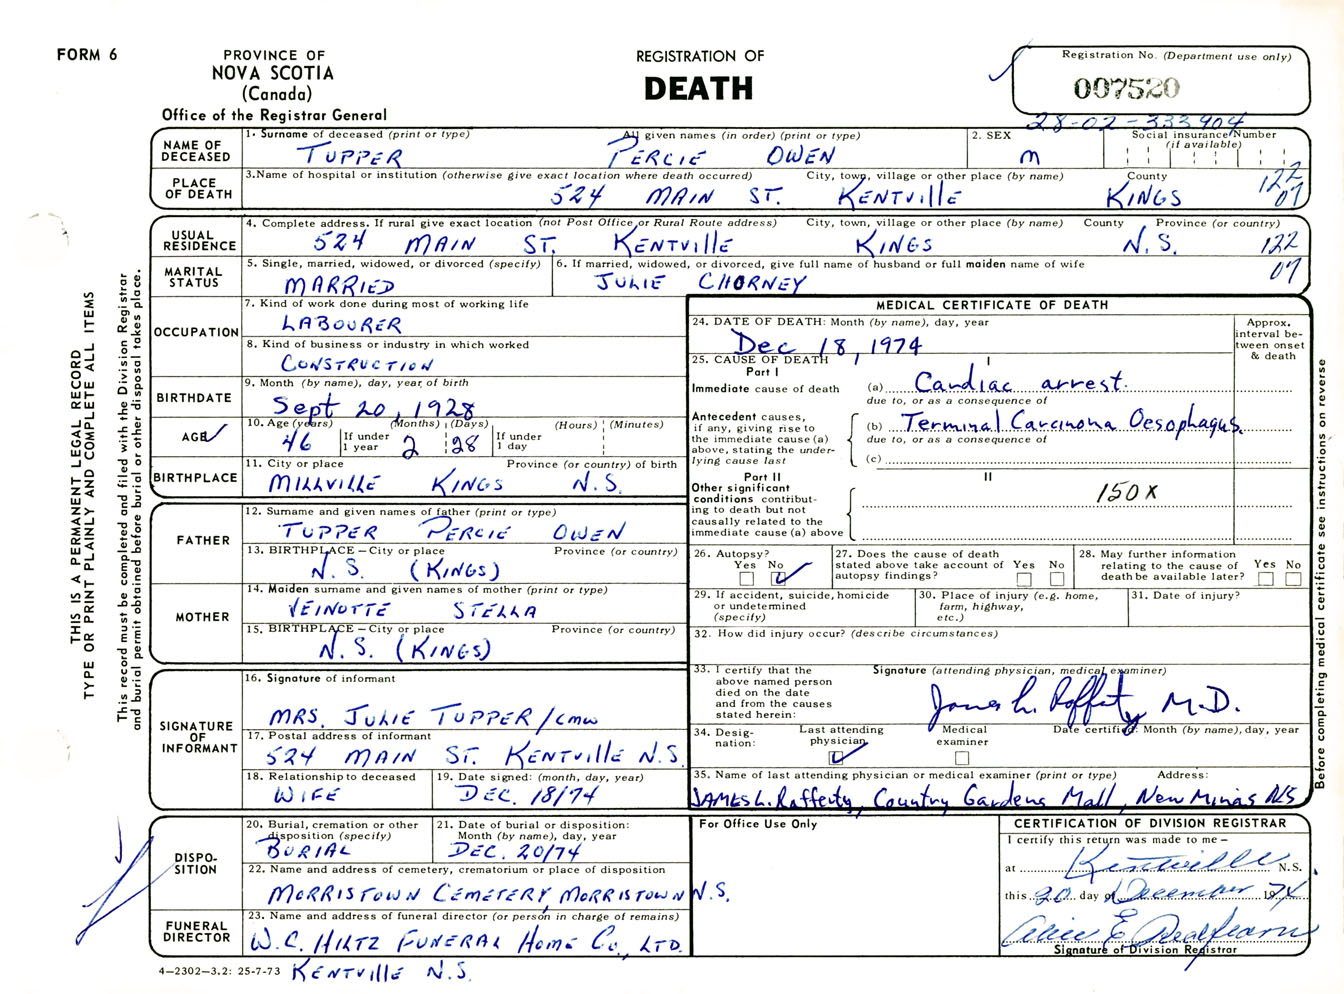 FORM 6
PROVINCE OF
NOVA SCOTIA
(Canada)
Office of the Registrar General
REGISTRATION OF
DEATH
Registration No. (Department use only)
007520
28-02-333904
NAME OF DECEASED
1. Surname of deceased (print or type) All given names (in order) (print or type)
TUPPER PERCIE OWEN
2. SEX
M
Social insurance Number
(if available)
PLACE OF DEATH
3. Name of hospital or institution (otherwise give exact location where death occurred) City, town, village or other place (by name) County
524 MAIN ST. KENTVILLE KINGS
122
07
USUAL RESIDENCE
4. Complete address. If rural give exact location (not Post Office or Rural Route address) City, town, village or other place (by name) County Province (or country)
524 MAIN ST. KENTVILLE KINGS N.S. 122
07
MARITAL STATUS
5. Single, married, widowed, or divorced (specify)
MARRIED
6. If married, widowed, or divorced, give full name of husband or full maiden name of wife
JULIE CHORNEY
OCCUPATION
7. Kind of work done during most of working life
LABOURER
8. Kind of business or industry in which worked
CONSTRUCTION
BIRTHDATE
9. Month (by name), day, year of birth
Sept 20, 1928
AGE
10. Age (years) (Months) (Days) (Hours) (Minutes)
46 If under 1 year 2 28 If under 1 day
BIRTHPLACE
11. City or place Province (or country) of birth
MILLVILLE KINGS N.S.
FATHER
12. Surname and given names of father (print or type)
TUPPER PERCIE OWEN
13. BIRTHPLACE – City or place Province (or country)
N.S. (KINGS)
MOTHER
14. Maiden surname and given names of mother (print or type)
VEINOTTE STELLA
15. BIRTHPLACE – City or place Province (or country)
N.S. (KINGS)
SIGNATURE OF INFORMANT
16. Signature of informant
MRS. JULIE TUPPER/cmw
17. Postal address of informant
524 MAIN ST. KENTVILLE N.S.
18. Relationship to deceased
WIFE
19. Date signed: (month, day, year)
DEC. 18/74
DISPO-
SITION
20. Burial, cremation or other disposition (specify)
BURIAL
21. Date of burial or disposition: Month (by name), day, year
DEC. 20/74
22. Name and address of cemetery, crematorium or place of disposition
MORRISTOWN CEMETERY, MORRISTOWN N.S.
FUNERAL DIRECTOR
23. Name and address of funeral director (or person in charge of remains)
W.C. HILTZ FUNERAL HOME CO., LTD.
KENTVILLE N.S.
4–2302–3.2: 25-7-73
MEDICAL CERTIFICATE OF DEATH
24. DATE OF DEATH: Month (by name), day, year
Dec 18, 1974
Approx. interval be-
tween onset & death
25. CAUSE OF DEATH
Part I
I
Immediate cause of death
(a) Cardiac arrest.
due to, or as a consequence of
Antecedent causes, if any, giving rise to the immediate cause (a) above, stating the under-
lying cause last
(b) Terminal Carcinoma Oesophagus.
due to, or as a consequence of
(c)
Part II
II
Other significant conditions contribut-
ing to death but not causally related to the immediate cause (a) above
150X
26. Autopsy?
Yes No
27. Does the cause of death stated above take account of autopsy findings?
Yes No
28. May further information relating to the cause of death be available later?
Yes No
29. If accident, suicide, homicide or undetermined (specify)
30. Place of injury (e.g. home, farm, highway, etc.)
31. Date of injury?
32. How did injury occur? (describe circumstances)
33. I certify that the above named person died on the date and from the causes stated herein:
Signature (attending physician, medical examiner)
James L. Rafferty M.D.
34. Desig-
nation:
Last attending physician
Medical examiner
Date certified: Month (by name), day, year
35. Name of last attending physician or medical examiner (print or type) Address:
JAMES L. Rafferty, Country Gardens Mall, New Minas NS
For Office Use Only
CERTIFICATION OF DIVISION REGISTRAR
I certify this return was made to me —
at Kentville N.S.
this 20 day of December 1974
Signature of Division Registrar
THIS IS A PERMANENT LEGAL RECORD
TYPE OR PRINT PLAINLY AND COMPLETE ALL ITEMS
This record must be completed and filed with the Division Registrar
and burial permit obtained before burial or other disposal takes place.
Before completing medical certificate see instructions on reverse